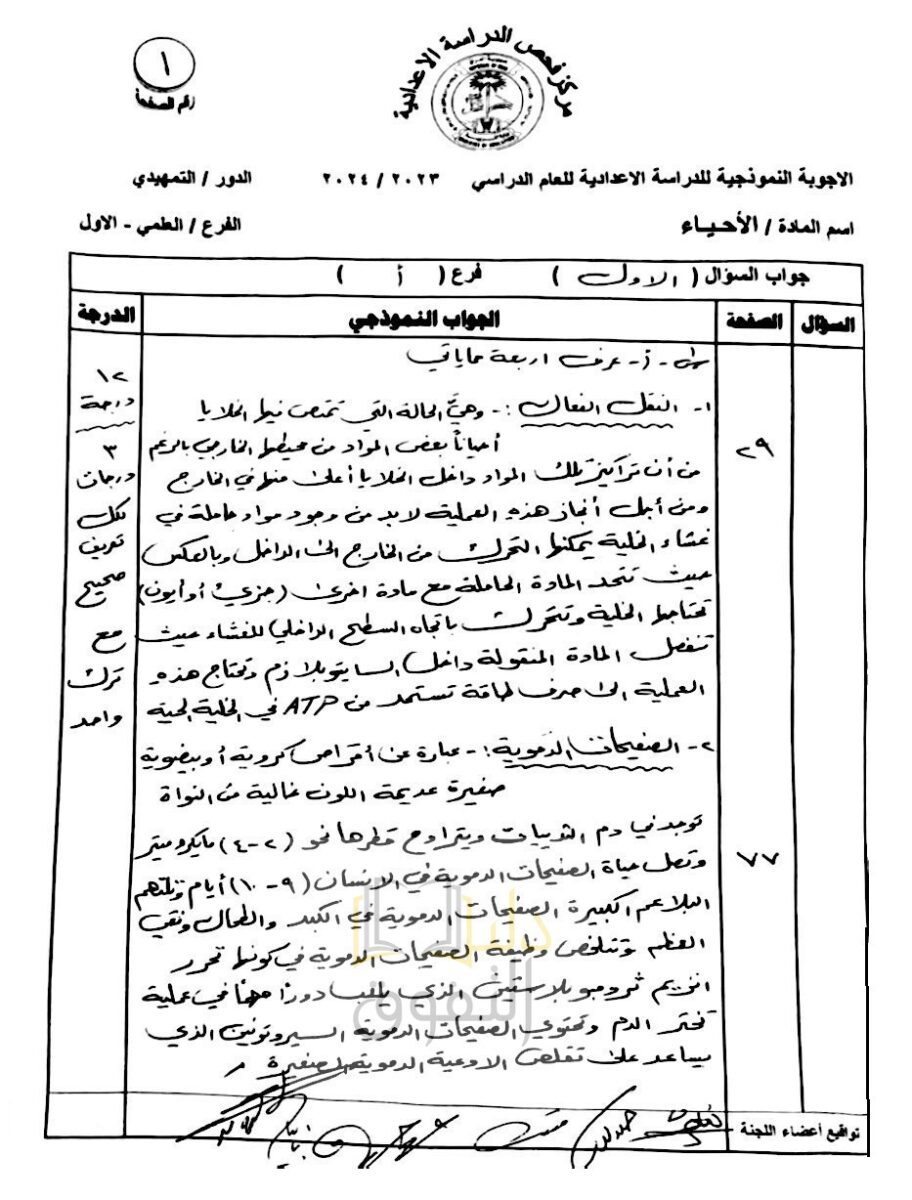 مركز فحص الدراسة الاعدادية
١
رقم الصفحة
الاجوبة النموذجية للدراسة الاعدادية للعام الدراسي ٢٠٢٣ / ٢٠٢٤ الدور / التمهيدي
اسم المادة / الأحياء الفرع / العلمي - الاول
جواب السؤال ( الاول ) فرع ( أ )
السؤال الصفحة الجواب النموذجي الدرجة
س١ - أ - عرف اربعة مما يأتي
١٢ درجة
١- النقل الفعال :- وهي الحالة التي تمتص فيها الخلايا
٢٩
أحياناً بعض المواد من محيطها الخارجي بالرغم
من أن تراكيز تلك المواد داخل الخلايا أعلى منها في الخارج
ومن أجل أنجاز هذه العملية لابد من وجود مواد حاملة في
غشاء الخلية يمكنها التحرك من الخارج الى الداخل وبالعكس
حيث تتحد المادة الحاملة مع مادة اخرى (جزيء أو أيون)
تحتاجها الخلية وتتحرك باتجاه السطح الداخلي للغشاء حيث
تنفصل المادة المنقولة داخل السايتوبلازم وتحتاج هذه
العملية الى صرف طاقة تستمد من ATP في الخلية الحية
٣
درجات
لكل
تعريف
صحيح
مع
ترك
واحد
٢- الصفيحات الدموية :- عبارة عن أقراص كروية أو بيضوية
صغيرة عديمة اللون خالية من النواة
توجد في دم الثدييات ويتراوح قطرها نحو (٢-٤) مايكروميتر
٧٧
وتصل حياة الصفيحات الدموية في الانسان (٩-١٠) أيام وتلتهم
البلاعم الكبيرة الصفيحات الدموية في الكبد والطحال ونقي
العظم وتتلخص وظيفة الصفيحات الدموية في كونها تحرر
انزيم ثرومبوبلاستين الذي يلعب دوراً مهماً في عملية
تخثر الدم وتحتوي الصفيحات الدموية السيروتونين الذي
يساعد على تقلص الاوعية الدموية الصغيرة
دليل التفوق
تواقيع أعضاء اللجنة -